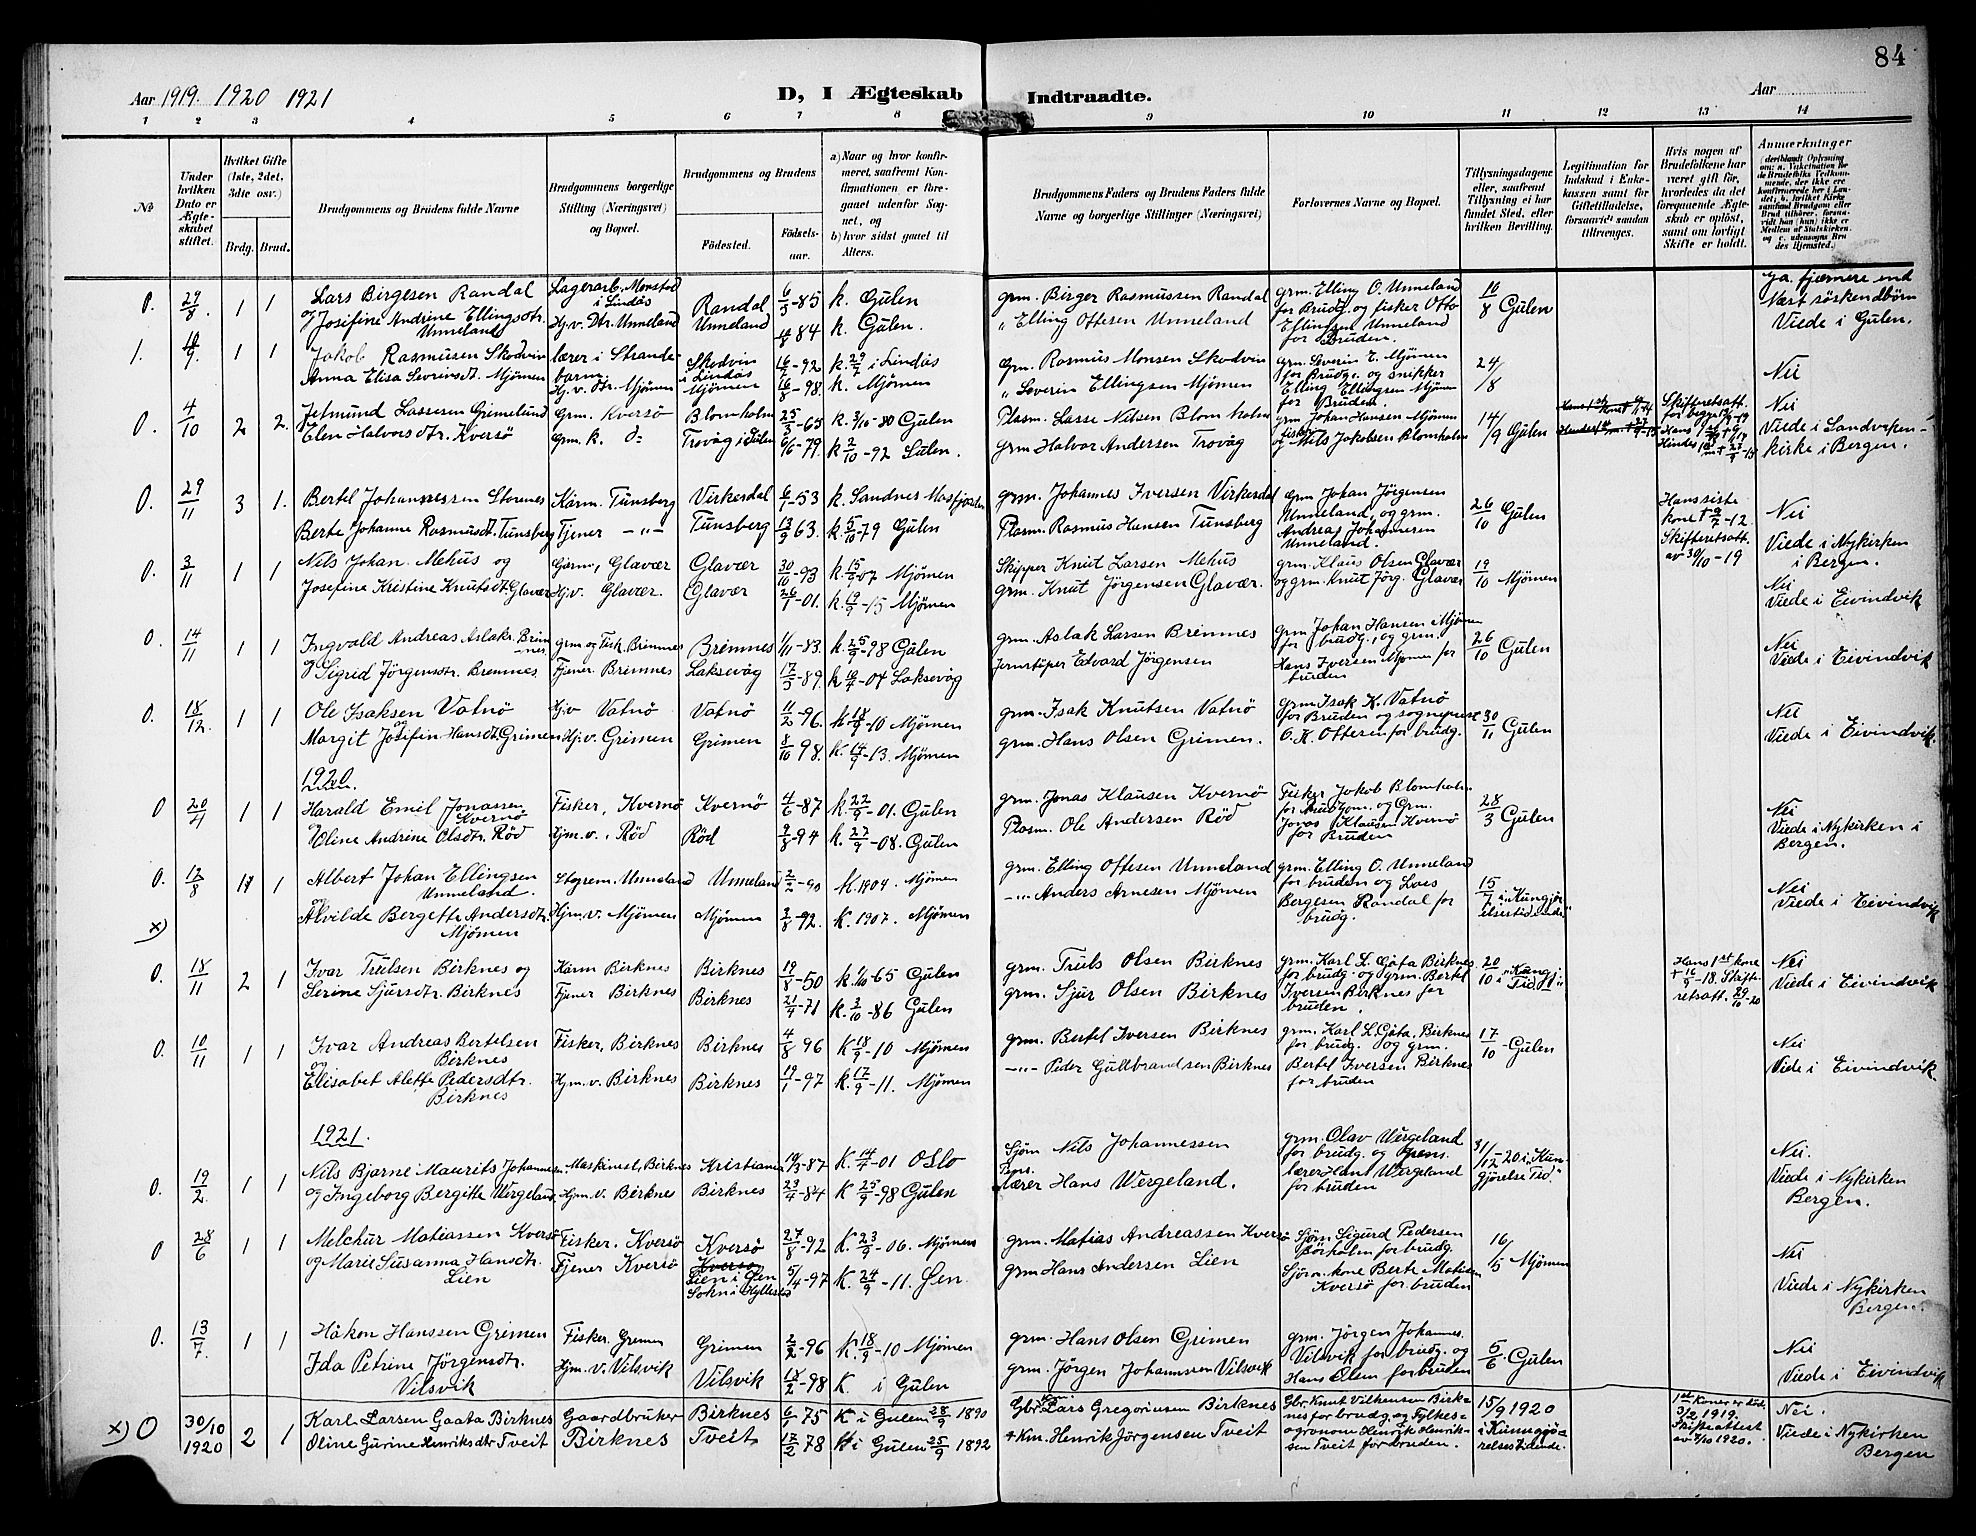 84
Aar 1919. 1920 1921
D, I Ægteskab Indtraadte.
Aar
1 2 3 4 5 6 7 8 9 10 11 12 13 14
No
Under hvilken Dato er Ægteskabet stiftet.
Hvilket Gifte (1ste, 2det, 3die osv.)
Brdg. Brud.
Brudgommens og Brudens fulde Navne
Brudgommens borgerlige Stilling (Næringsvei) og Bopæl.
Brudgommens og Brudens
Fødested.
Fødselsaar.
a) Naar og hvor konfirmeret, saafremt Konfirmationen er foregaaet udenfor Sognet, og
b) hvor sidst gaaet til Alters.
Brudgommens Faders og Brudens Faders fulde Navne og borgerlige Stillinger (Næringsvei)
Forlovernes Navne og Bopæl.
Tillysningsdagene eller, saafremt Tillysning ei har fundet Sted, efter hvilken Bevilling.
Legitimation for Indskud i Enkekassen samt for Giftetilladelse, forsaavidt saadan tiltrænges.
Hvis nogen af Brudefolkene har været gift før, hvorledes da det foregaaende Ægteskab er opløst, samt om lovligt Skifte er holdt.
Anmerkninger
0. 29/8. 1 1 Lars Birgesen Randal Lagerarb. Monstad i Lindås Randal 6/5-85 k. Gulen grm. Birger Rasmussen Randal grm. Elling O. Unneland for Brudg. og fisker Otto Ellingsen Unneland for Bruden. 10/8 Gulen Ja, fjærnere end Nært søskendbørn
og Josifine Andrine Ellingsdtr. Unneland Hj.v. Dtr. Unneland Unneland 84 k. Gulen. " Elling Ottesen Unneland Viede i Gulen.
1. 1 1 Jakob Rasmusen Skodvin lærer i Strandebarm Skodvin i Lindås -92 k. i Lindås grm. Rasmus Monsen Skodvin grm. Severin E. Mjømen for Brudg. og snipper Elling Ellingsen Mjømen for Bruden. 24/8 Nei
Anna Elisa Sevrinsdt. Mjömen Hj.v. dtr. Mjömen Mjömen 16/8-98. k. Mjömen " Severin Ellingsen Mjömen
0. 4/10 2 2. Jetmund Lassesen Grimelund Grm. Kversö Blomholm 25/3-65 k. 3/10-80 Gulen Plasm. Lasse Nilsen Blomholm grm. Johan Hansen Mjömen 14/9 Gulen Nei
Elen Halvorsdtr. Kversö Grm. k. d= Trovåg i Gulen 6/6-79. k 2/10-92 Gulen. Grm Halvor Andersen Trovåg og Nils Jakobsen Blomholm Viede i Sandvikenkirke i Bergen.
0. 29/11 3 1. Bertel Johannessen Storenes Kårm. Tunsberg Virkesdal 6/7-53 k. Sandnes Masfjorden grm. Johannes Iversen Virkesdal Grm Johan Jörgensen Unneland, og grm. Andreas Johannesen Unneland. 26/10 Gulen Hans siste kone + 9/7-12. Skifteretsatt. av 30/10-19 Nei
Berte Johanne Rasmusdt. Tunsberg Tjener -"- Tunsberg 13/9 63. k. 5/10-79 Gulen Plasm. Rasmus Hansen Tunsberg Viede i Nykirken i Bergen.
0. 3/11 1 1 Nils Johan Mehus og Gårm., Glavær Glavær 30/10-93 k. 15/9-07 Mjömen Skipper Knut Larsen Mehus grm. Klaus Olsen Glavær 19/10 Mjömen Nei
Josefine Kristine Knutsdt. Glavær Hj.v. Glavær. Glavær 26/1-01. k. 19/9-15 Mjömen grm. Knut Jörgensen Glavær. og grm. Knut Jörg. Glavær Viede i Eivindvik
0. 14/11 1 1 Ingvald Andreas Aslaks. Brimnes grm og Fisk. Brimnes Bremnes 1/11-83. k. 25/9-98 Gulen grm. Aslak Larsen Brimnes grm Johan Hansen Mjömen for brudg., og grm. Hans Iversen Mjömen for bruden 26/10 Gulen Nei
og Sigrid Jörgensdtr. Bremnes. Tjener. Brimnes Laksevåg 17/5-89. k -04 Laksevåg Jernstöper Edvard Jörgensen Viede i Eivindvik
0. 18/12. 1 1 Ole Isaksen Vatnö Hj.v Vatnö Vatnö 11/2-96. k. 18/9-10 Mjömen grm. Isak Knutsen Vatnö grm. Isak K. Vatnö for Bruden og sogneprest O. K. Ottesen for brudg. 30/11 Gulen Nei
og Margit Josefin Hansdt. Grimen Hj.v. Grimen Grimen 8/10 98. K. 14/9-13. Mjömen grm. Hans Olsen Grimen. Viede i Eivindvik.
1920.
0 20/4 1 1 Harald Emil Jonassen Kvernö Fisker, Kvernö Kvernö 4/6-87 k. 22/9-01. Gulen grm. Jonas Klausen Kvernö Fisker Jakob Blomholm for brudgom. og Grm. Jonas Klausen Kvernö for Bruden 28/3 Gulen Nei
og Oline Andrine Olsdtr. Röd Hjm.v. , Röd Röd 9/8-94 k. 27/9-08. Gulen Plasm. Ole Andersen Röd Viede i Nykirken i Bergen.
0. 12/8 1 1 Albert Johan Ellingsen Unneland. Unneland Unneland 2/2-90 K. 1904. Mjömen grm. Elling Ottesen Unneland grm. Elling O. Unneland for bruden og Lars Bergesen Randal for brudg. 15/7 i "Kungjörelsestidende" Nei
x) og Alvilde Bergette Andersdtr. Mjömen Hjm.v. Mjömen Mjömen 2/8-92. K. 1907. Mjömen -"- Anders Arnesen Mjömen Viede i Eivindvik
0. 18/11 2 1 Ivar Trulsen Birknes og Kårm Birknes Birknes 19/8-50 k. 1/10 65 Gulen grm. Truls Olsen Birknes grm. Karl L. Gåta Birknes for brudg. og grm. Bertel Iversen Birknes for bruden. 20/10 i "Kungj. Tid." Hans 1st kone + 16/9-18. Skifteretsatt. 29/10-20 Nei
Serine Sjursdtr. Birknes Tjener Birknes Birknes 21/4-71 k. 3/10-86 Gulen grm. Sjur Olsen Birknes Viede i Eivindvik
0. 10/11 1 1 Ivar Andreas Bertelsen Birknes Fisker, Birknes Birknes 4/8 96 K 18/9-10 Mjömen grm. Bertel Iversen Birknes grm. Karl L. Gåta, Birknes for brudg. og grm. Bertel Iversen Birknes for bruden 17/10-Gulen Nei
og Elisabet Alette Pedersdtr. Birknes Hjm.v. Birknes Birknes 19/1-97 k. 17/9-11. Mjömen -"- Peder Gulbrandsen Birknes Viede i Eivindvik.
1921.
0. 19/2. 1 1 Nils Bjarne Maurits Johannesen Maskinist, Birknes Kristiania 19/3-87 K. 14/4-01 Oslo Sjöm Nils Johannessen grm. Olav Wergeland for brudg. og pens. lærer Hans Wergeland for bruden 31/12-20 i Kungjörelse Tid. Nei.
og Ingeborg Bergitte Wergeland Hjm.v. Birknes Birknes 23/4-84 K 25/9-98 Gulen Pens. lærer Hans Wergeland. Viede i Nykirken Bergen.
0 28/6 1 1 Melchur Matiassen Kversö Fisker. Kversö Kversö 27/8-92 K. 23/9-06. Mjömen grm. Matias Andreassen Kversö Sjöm. Sigurd Pedersen for brudg. Sjöm. kone Berte Matisen Kversö for bruden 16/5 Mjömen Nei
og Marie Susanna Hansdtr. Lien Tjener Kversö Lien i Øen Sokn i Hyllestad 5/4-97 K. 24/9-11. Øen. grm Hans Andersen Lien Viede i Nykirken Bergen.
0. 13/7 1 1 Håkon Hanssen Grimen Fisker. Grimen Grimen 2/2-96 K. 18/9-10 Mjömen grm. Hans Olsen Grimen grm. Jörgen Johannes. Vilsvik for brudg. og Hans Olsen for bruden 5/6 Gulen Nei
Ida Petrine Jörgensdtr. Vilsvik Hjm.v. Vilsvik Vilsvik 18/2-98 K. i Gulen grm. Jörgen Johannssen Vilsvik Viede i Eivindvik
x) 0 30/10 1920 2 1 Karl Larsen Gaata Birknes Gaardbruker Birknes 6/6 75 K i Gulen 28/9 1890 Gbr. Lars Gregoriusen Birknes Gbr. Knut Vilhemsen Birknes for brudg. og Fylkesagronom Henrik Henriksen Tveit for bruden. 15/9 1920 i Kunngjørelsestidende. 1st Kone er död 3/2 1919. Skifteattest av 7/10 1920. Nei.
Oline Gurine Henriksdtr Tveit Birknes Tveit 17/2 78 K i Gulen 25/9 1892 + Km. Henrik Jörgensen Tveit Viede i Nykirken Bergen